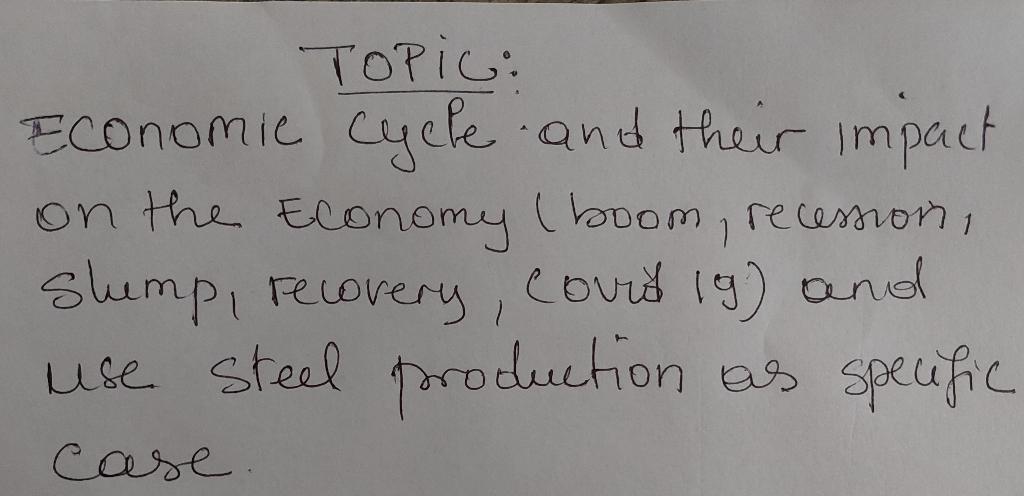 TOPIC:
Economic cycle and their impact
on the Economy (boom, recession,
slump, recovery, Covid 19) and
use steel production as specific
case.